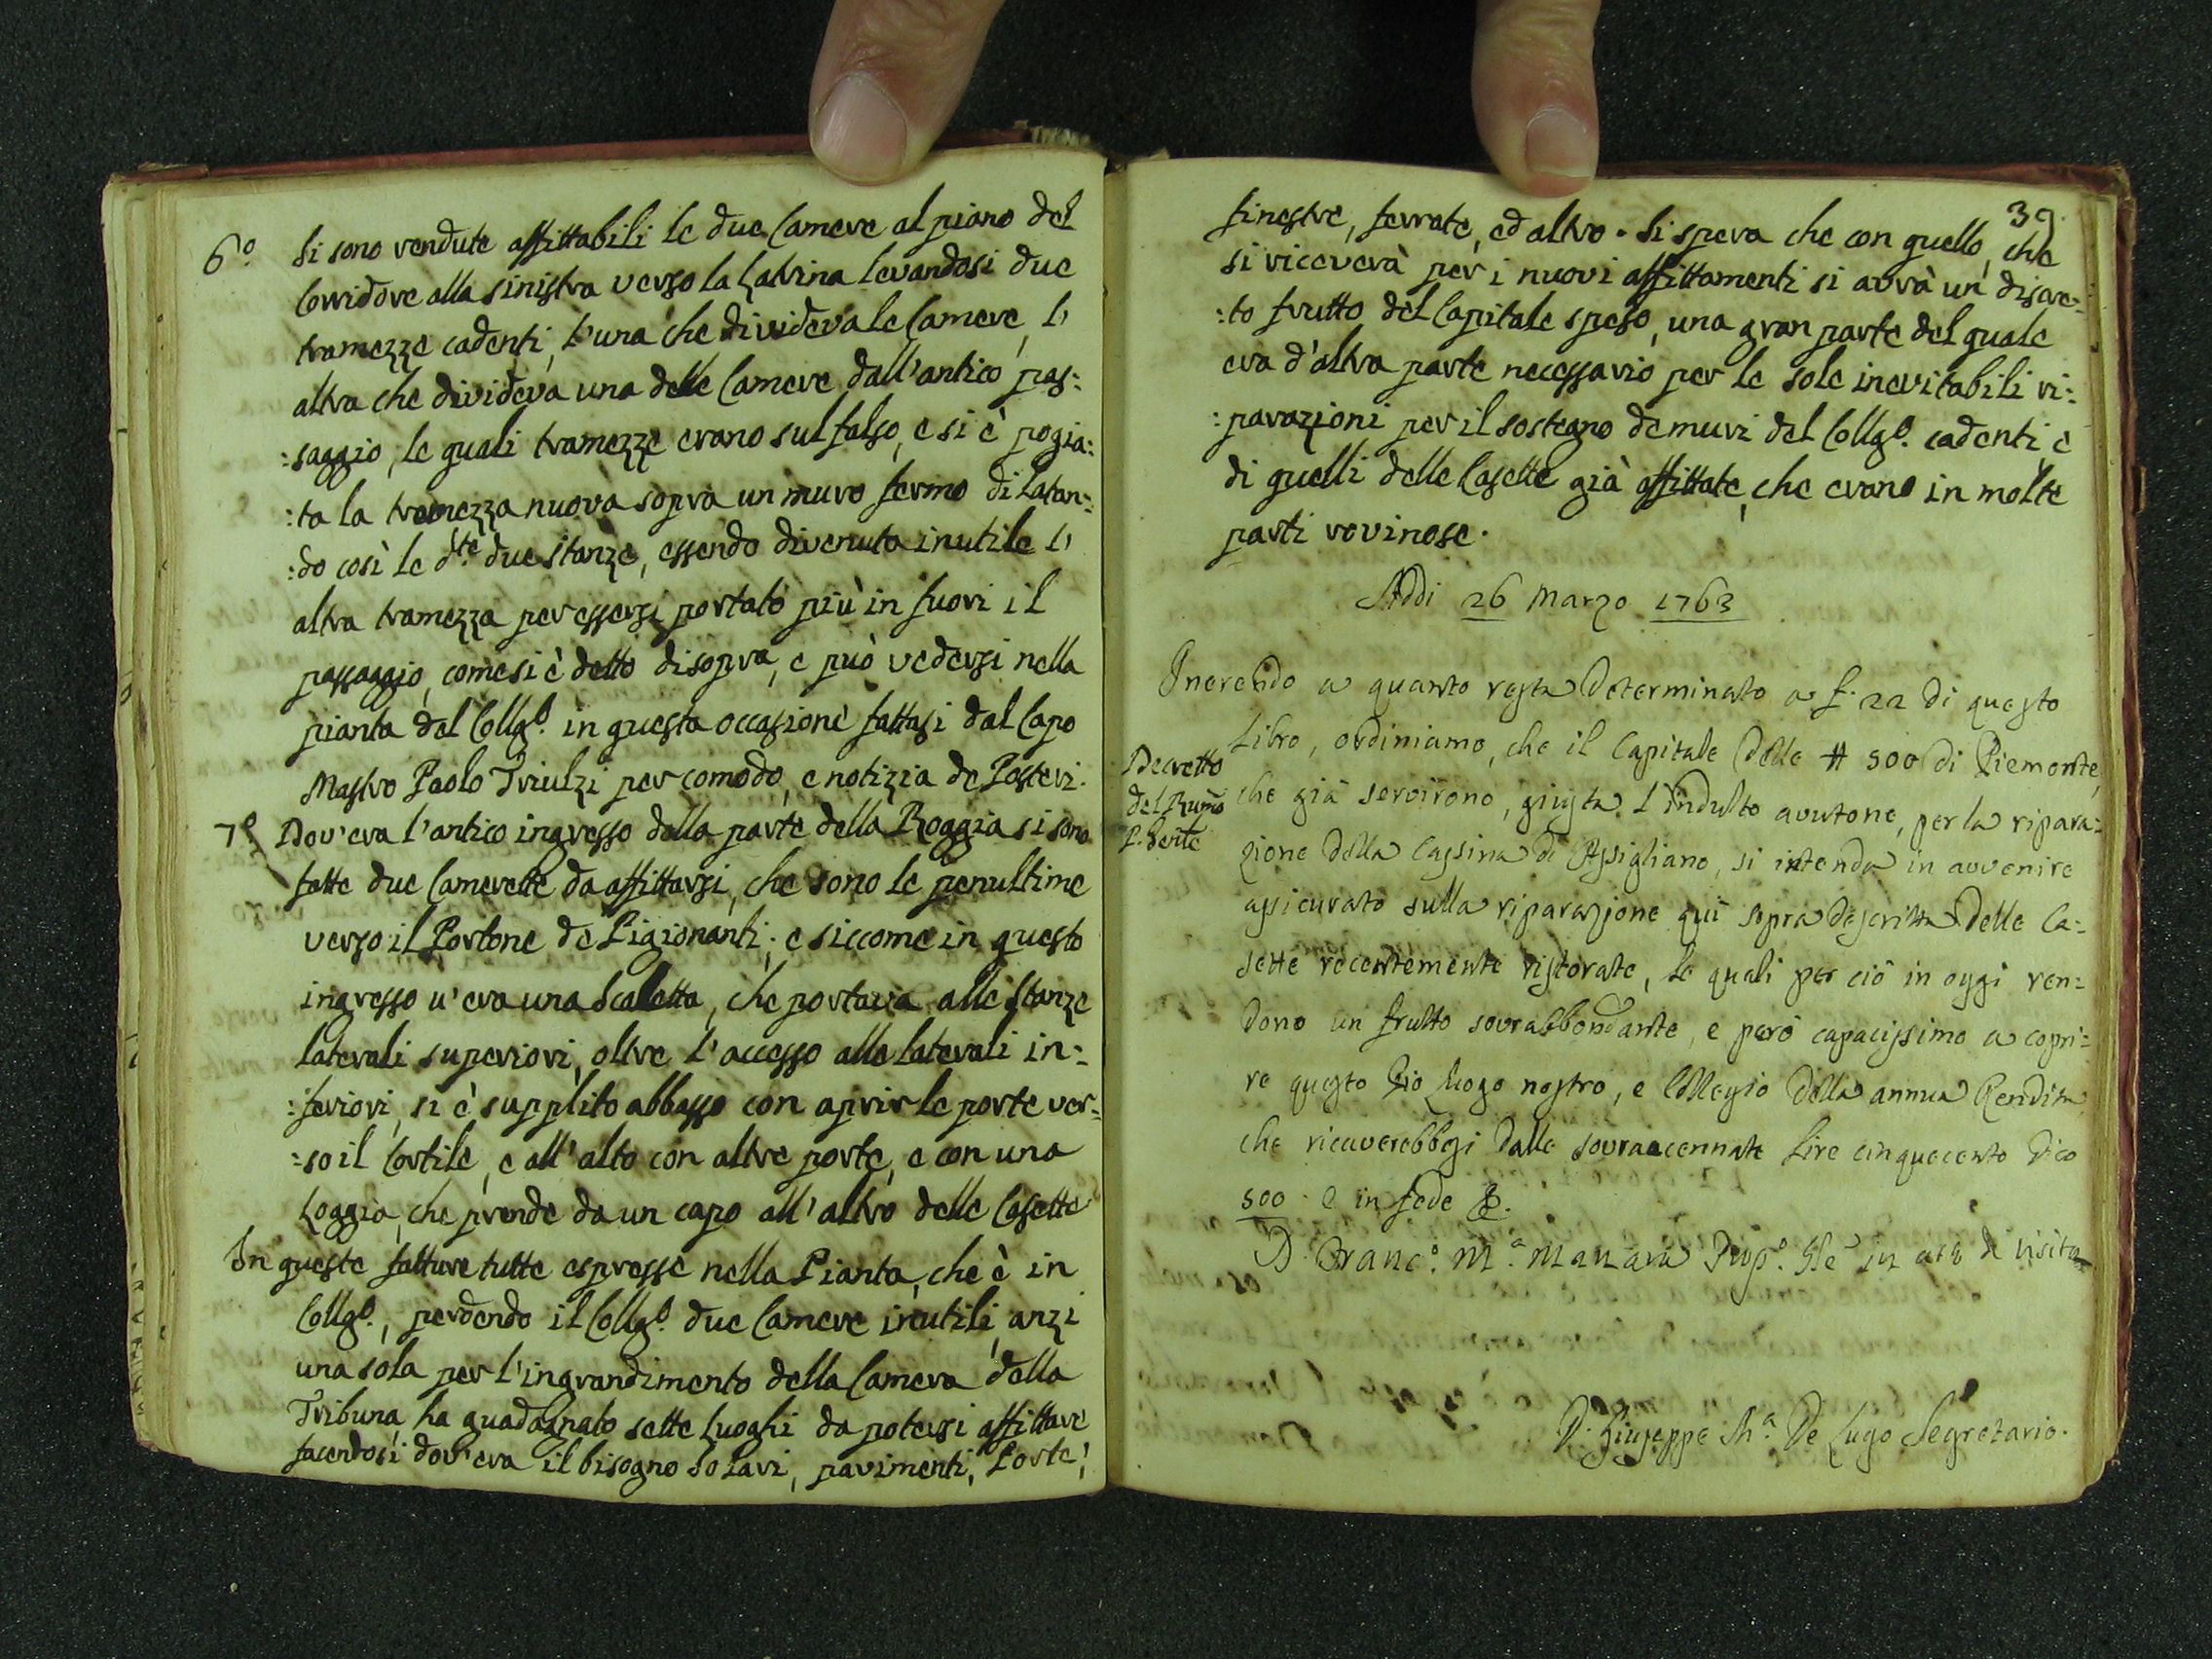 6.º Si sono rendute affittabili le due Camere al piano del
Corridore alla sinistra verso la Latrina levandosi due
tramezze cadenti, l'una che divideva le Camere, l'
altra che divideva una delle Camere dall'antico pas:
:saggio, le quali tramezze erano sul falso, e si è pogia:
:ta la tramezza nuova sopra un muro fermo dilatan:
:do così le d.te due stanze, essendo divenuta inutile l'
altra tramezza per essersi portato più in fuori il
passaggio, come si è detto disopra, e può vedersi nella
pianta del Collg.º in questa occasione fattasi dal Capo
Mastro Paolo Triulzi per comodo, e notizia de Posteri.
7.º Dov'era l'antico ingresso dalla parte della Roggia si sono
fatte due Camerette da affittarsi, che sono le penultime
verso il Portone de Pigionanti; e siccome in questo
ingresso v'era una Scaletta, che portava alle stanze
laterali superiori, oltre l'accesso alle laterali in:
:feriori, si è supplito abbasso con aprir le porte ver:
:so il Cortile, e all'alto con altre porte, e con una
Loggia, che prende da un capo all'altro delle Casette
In queste fatture tutte espresse nella Pianta, che è in
Collg.º, perdendo il Collg.º due Camere inutili, anzi
una sola per l'ingrandimento della Camera della
Tribuna ha guadagnato sette Luoghi da potersi affittare
facendosi dov'era il bisogno Solari, pavimenti, Porte,
39.
finestre, ferrate, ed altro. Si spera che con quello, che
si riceverà per i nuovi affittamenti si avrà un discre:
:to frutto del Capitale speso, una gran parte del quale
era d'altra parte necessario per le sole inevitabili ri:
:parazioni per il sostegno de muri del Collg.º cadenti e
di quelli delle Casette già affittate, che erano in molte
parti rovinose.
Addi 26 Marzo 1763
Inerendo a quanto resta Determinato a f. 22 di questo
Libro, ordiniamo, che il Capitale delle # 500 di Piemonte,
Decretto
del Rmo
P. Gente
che già servirono, giusta l'indulto avutone, per la ripara:
zione della Cassina di Assigliano, si intenda in avvenire
assicurato sulla riparazione qui sopra descritta delle Ca:
sette recentemente ristorate, le quali per ciò in oggi ren:
dono un frutto sovrabbondante, e però capacissimo a copri:
re questo Pio Luogo nostro, e Collegio della annua Rendita
che ricaverebbesi dalle sovraacennate Lire cinquecento Dico
500. e in fede
D. Franc.º M.ª Manara Prop.º Gle in atto di visita
D. Giuseppe M.ª De Lugo Segretario.